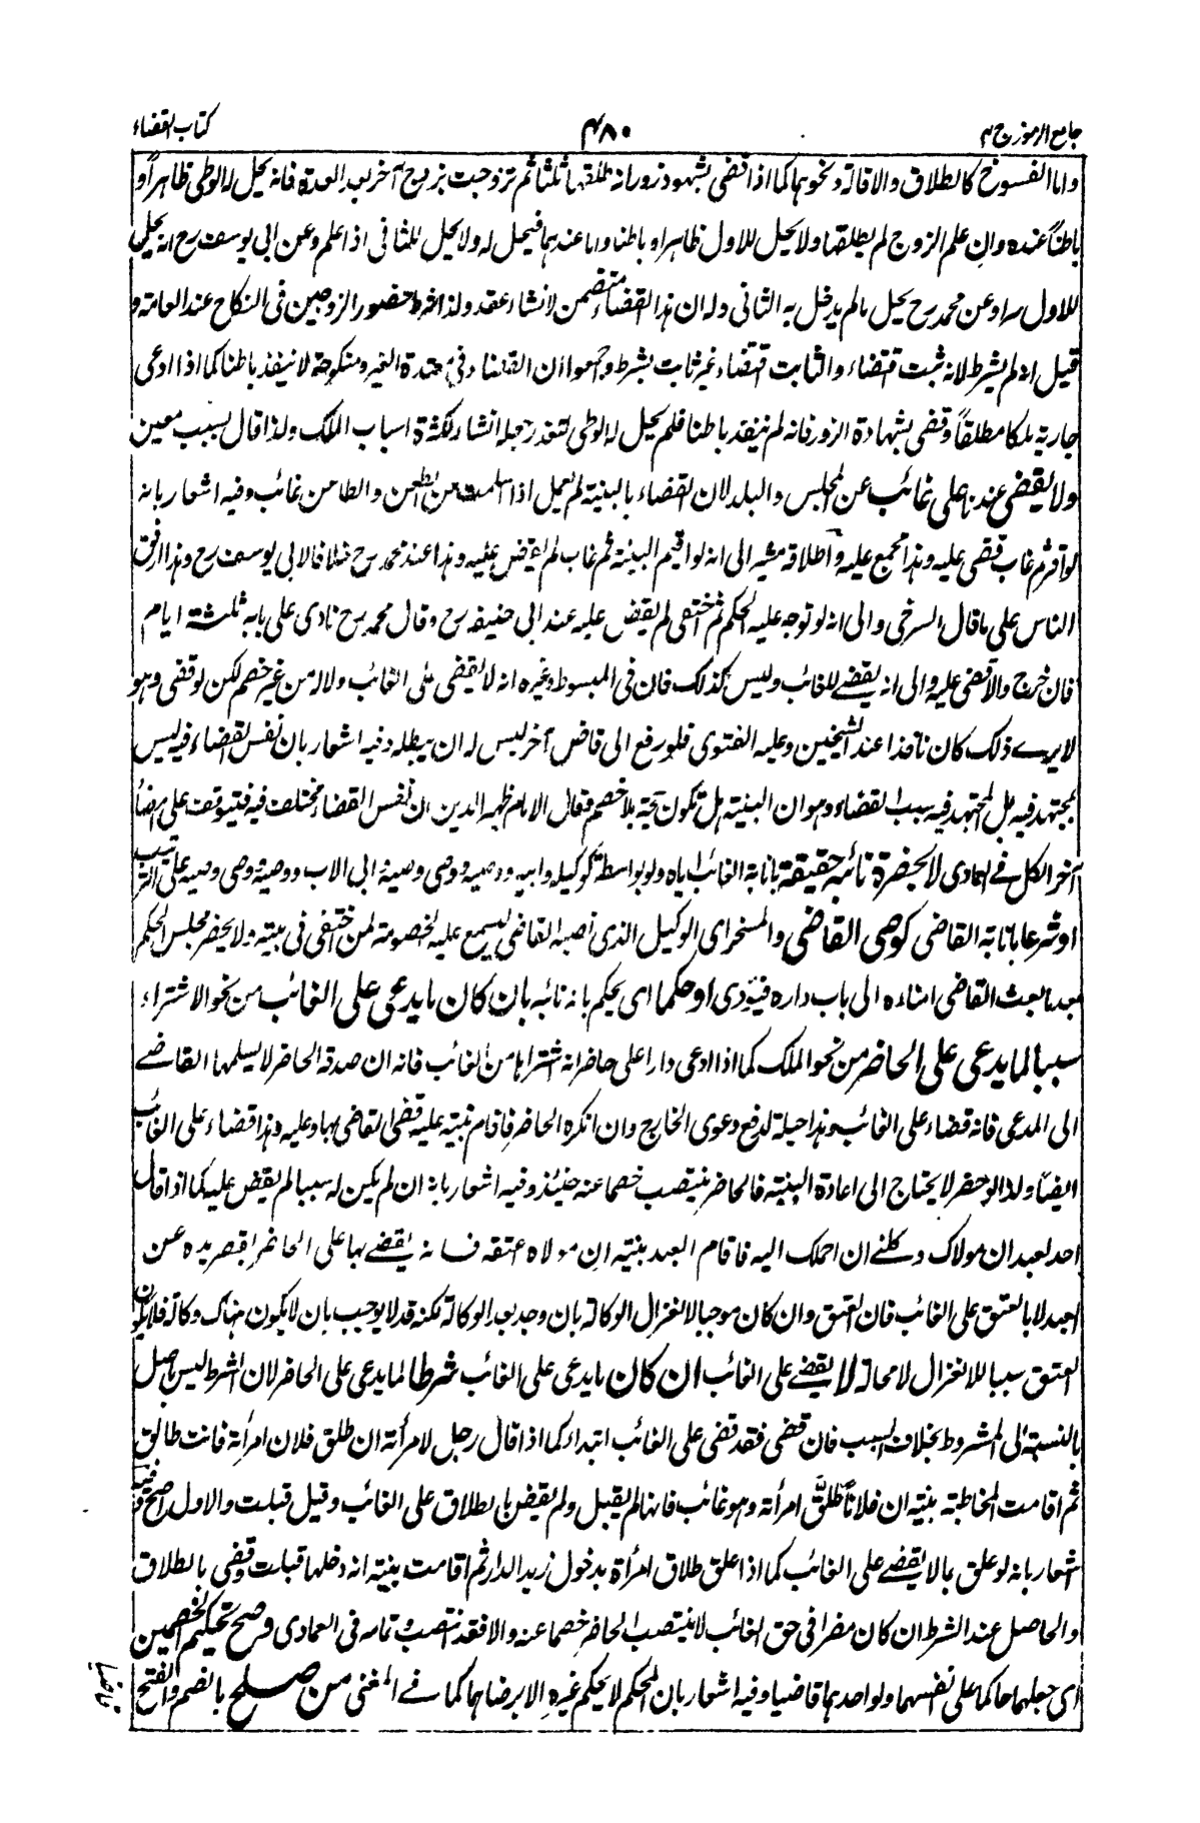 جامع الرموز ج ۲
۴۸۰
كتاب القضاء
واما الفسوخ كالطلاق والاقالة ونحوهما كما اذا قضى بشهود زور انه طلقها ثلثا ثم تزوجت بزوج آخر بعد العدة فانه يحل له الوطى ظاهراً و
باطناً عنده وان علم الزوج لم يطلقها ولا يحل للاول ظاهرا وباطنا واما عندهما فيحل له ولا يحل للثانى اذا علم وعن ابى يوسف رح انه يحل
للاول سرا وعن محمد رح يحل مالم يدخل به الثانى وله ان هذا القضاء متضمن لانشاء عقد ولذا شرط حضور الزوجين فى النكاح عند العامة و
قيل انه لم يشرط لانه ثبت اقتضاء والثابت اقتضاء غير ثابت بشرط وجمعوا ان القضاء فى معتدة الغير ومنكوحة لا ينفذ باطنا كما اذا ادعى
جارية ملكا مطلقاً وقضى بشهادة الزور فانه لم ينفذ باطنا فلم يحل له الوطى لتعذر جعله انشاء لكثرة اسباب الملك ولذا قال بسبب معين
ولا يقضى عندنا على غائب عن المجلس والبلد لان القضاء بالبينة لم يعمل اذا سلمت عن الطعن والطاعن غائب وفيه اشعار بانه
لو اقر ثم غاب قضى عليه وهذا مجمع عليه واطلاقه مشير الى انه لو اقيم البينة ثم غاب لم يقض عليه وهذا عند محمد رح خلافا لابى يوسف رح وهذا ارفق
الناس على ما قال السرخى والى انه لو توجه عليه الحكم ثم اختفى لم يقض عليه عند ابى حنيفة رح وقال محمد رح نادى على بابه ثلثة ايام
فان خرج والا قضى عليه والى انه يقضے للغائب وليس كذلك فان فى المبسوط وغيره انه لا يقضى على الغائب ولا له من غير خصم لكن لو قضى وهو
لا يرے ذلك كان نافذا عند الشيخين وعليه الفتوى فلو رفع الى قاض آخر ليس له ان يبطله وفيه اشعار بان نفس القضاء فيه ليس
بمجتهد فيه بل المجتهد فيه سبب القضاء وهو ان البينة هل تكون حجة بلا خصم فقال الامام ظهير الدين ان نفس القضاء مختلف فيه فيتوقف على امضاء
آخر الكل فے العمادى لا بحضرة نائبه حقيقة بانابة الغائب اياه ولو بواسطة كوكيله وابيه ووصيه ووصى وصية ابى الاب ووصيه وصى وصيه على الترتيب
او شرعا بانابة القاضى كوصى القاضى والمسخر اى الوكيل الذى نصبه القاضى ليسمع عليه الخصومة لمن اختفى فى بيته ولا يحضر مجلس الحكم
بعد ما بعث القاضى امناءه الى باب داره فيؤدى او حكما اى يحكم بانه نائبه بان كان ما يدعى على الغائب من نحو الاشتراء
سببا لما يدعى على الحاضر من نحو الملك كما اذا ادعى دارا على حاضر انه اشتراها من الغائب فانه ان صدقه الحاضر لا يسلمها القاضے
الى المدعى فانه قضاء على الغائب وهذا حيلة لدفع دعوى الخارج وان انكره الحاضر فاقام بينة عليه قضى القاضى بها وعليه وهذا قضاء على الغائب
ايضا ولذا لو حضر لا يحتاج الى اعادة البينة فالحاضر ينتصب خصما عنه حينئذ وفيه اشعار بانه ان لم يكن له سببا لم يقض عليه كما اذا قال
احد لعبد ان مولاك وكلنے ان احملك اليه فاقام العبد بينة ان مولاه اعتقه فانه يقضے بها على الحاضر بقصر يده عن
العبد لا بالعتق على الغائب فان العتق وان كان موجبا لانعزال الوكالة بان وجد بعد الوكالة لكنه قد لا يوجب بان لا يكون هناك وكالة فلا يكون
العتق سببا للانعزال لا محالة لا يقضے على الغائب ان كان ما يدعى على الغائب شرطا لما يدعى على الحاضر لان الشرط ليس باصل
بالنسبة الى المشروط بخلاف السبب فان قضى فقد قضى على الغائب ابتداء كما اذا قال رجل لامرأته ان طلق فلان امرأته فانت طالق
ثم اقامت المخاطبة بينة ان فلاناً طلّق امرأته وهو غائب فانها لم يقبل ولم يقض بالطلاق على الغائب وقيل قبلت والاول اصح وفيه
اشعار بانه لو علق بما لا يقضے على الغائب كما اذا علق طلاق امرأة بدخول زيد الدار ثم اقامت بينة انه دخلها قبلت وقضى بالطلاق
والحاصل عند الشرط ان كان مضرا فى حق الغائب لا ينتصب الحاضر خصما عنه والا فقد انتصب وتمامه فى العمادى وصح تحكيم الخصمين
اى جعلهما حاكما على نفسهما ولو احدهما قاضيا وفيه اشعار بان المحكم لا يحكم غيره الا برضاهما كما فے المغنى من صلح بالضم والفتح
قاضيا